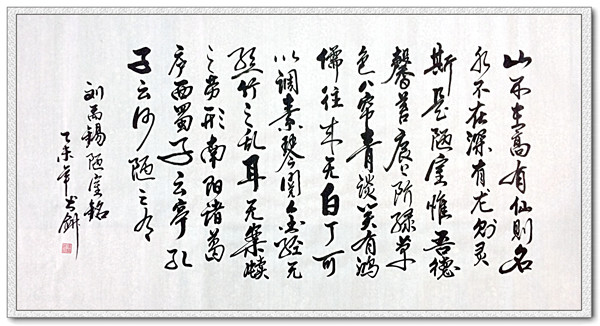 山不在高有仙则名
水不在深有龙则灵
斯是陋室惟吾德
馨苔痕上阶绿草
色入帘青谈笑有鸿
儒往来无白丁可
以调素琴阅金经无
丝竹之乱耳无案牍
之劳形南阳诸葛
庐西蜀子云亭孔
子云何陋之有
刘禹锡陋室铭
乙未年